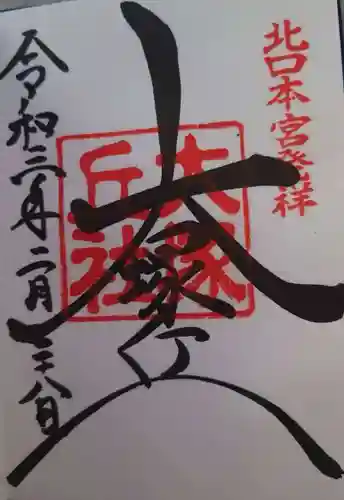 北口本宮発祥
大塚丘
大塚
丘社
令和三年二月二十八日